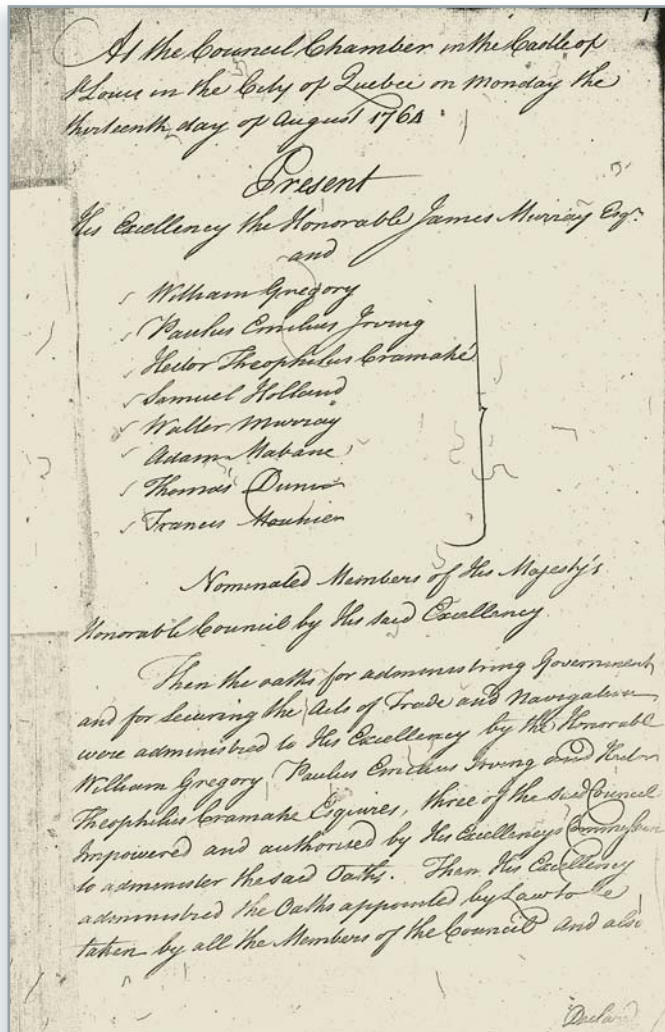 At the Council Chamber in the Castle of
St Louis in the City of Quebec on Monday the
thirteenth day of August 1764
Present
His Excellency the Honorable James Murray Esqr.
and
William Gregory
Paulus Emilius Irving
Hector Theophilus Cramahé
Samuel Holland
Walter Murray
Adam Mabane
Thomas Dunn
Francis Mounier
Nominated Members of His Majesty's
Honorable Council by His said Excellency
Then the oaths for administring Government
and for securing the Acts of Trade and Navigation
were administred to His Excellency by the Honorable
William Gregory, Paulus Emilius Irving and Hector
Theophilus Cramahe Esquires, three of the said Council
Impowered and authorised by His Excellency's Commission
to administer the said Oaths. Then His Excellency
administred the Oaths appointed by Law to be
taken by all the Members of the Council and also